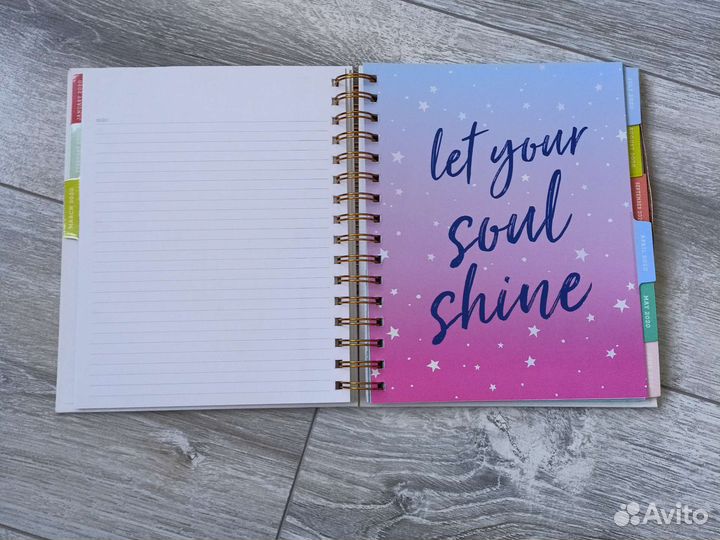 MARCH 2020
let your
soul
shine
APRIL 2020
MAY 2020
Avito